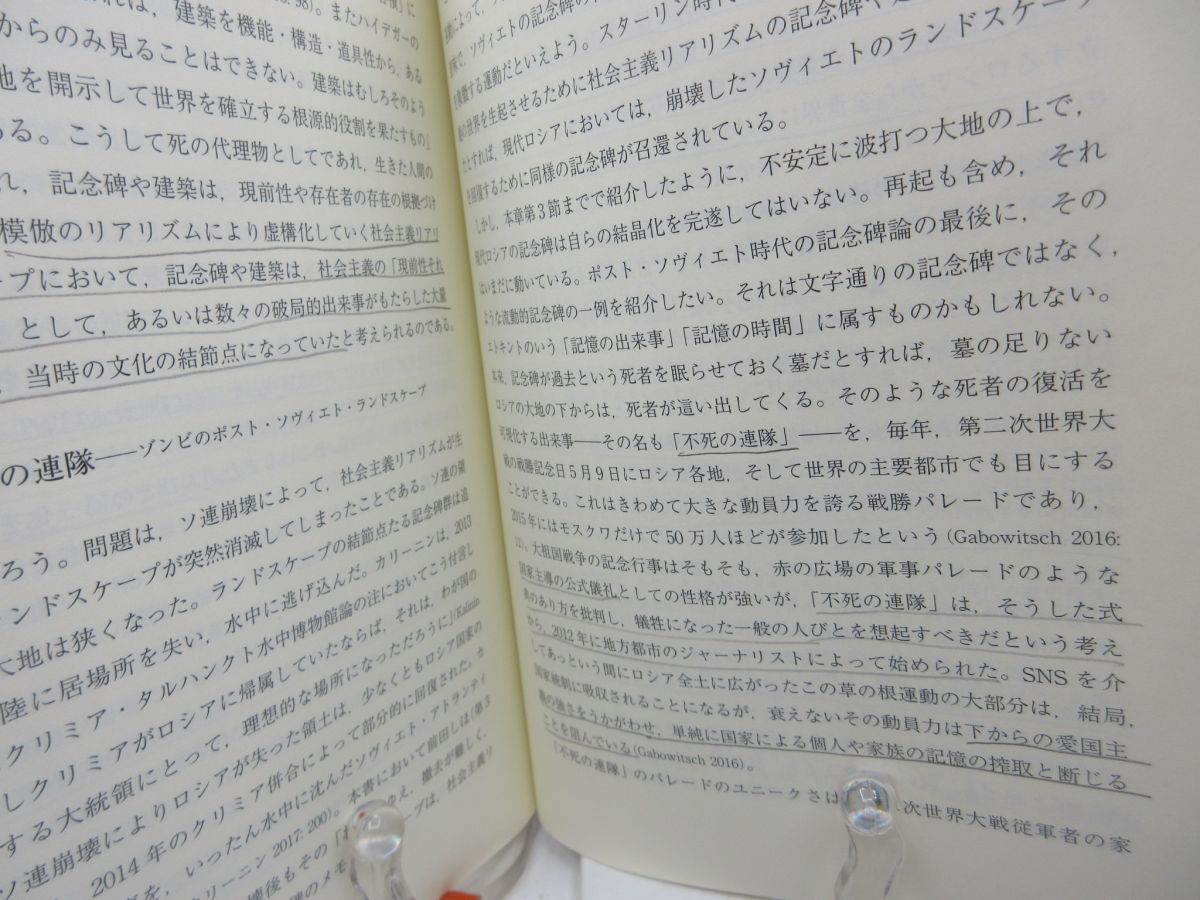 98)。またハイデガーの
れば，建築を機能・構造・道具性から，ある
からのみ見ることはできない。建築はむしろそのよう
地を開示して世界を確立する根源的役割を果たすもの」
ある。こうして死の代理物としてであれ，生きた人間の
れ，記念碑や建築は，現前性や存在者の存在の根拠づけ
模倣のリアリズムにより虚構化していく社会主義リアリ
ープにおいて，記念碑や建築は，社会主義の「現前性それ
として，あるいは数々の破局的出来事がもたらした大量
，当時の文化の結節点になっていたと考えられるのである。
の連隊──ゾンビのポスト・ソヴィエト・ランドスケープ
ろう。問題は，ソ連崩壊によって，社会主義リアリズムが生
ンドスケープが突然消滅してしまったことである。ソ連の領
大地は狭くなった。ランドスケープの結節点たる記念碑群は追
陸に居場所を失い，水中に逃げ込んだ。カリーニンは，2013
クリミア・タルハンクト水中博物館論の注においてこう付言し
しクリミアがロシアに帰属していたならば，それは，わが国の
する大統領にとって，理想的な場所になっただろうに」(Kalinin
ソ連崩壊によりロシアが失った領土は，少なくともロシア国家の
2014年のクリミア併合によって部分的に回復された。カ
を，いったん水中に沈んだソヴィエト・アトランティ
リーニン 2017: 200)。本書において前田しは(第3
壊後もその「
ゆえ，撤去が難しく，
碑のメモ
ープは，社会主義リ
意味で，ソヴィエトの記念碑の
を喚起する運動だといえよう。スターリン時代
の世界を生起させるために社会主義リアリズムの記念碑や
だとすれば，現代ロシアにおいては，崩壊したソヴィエトのランドスケープ
を回復するために同様の記念碑が召還されている。
しかし，本章第3節までで紹介したように，不安定に波打つ大地の上で，
現代ロシアの記念碑は自らの結晶化を完遂してはいない。再起も含め，それ
はいまだに動いている。ポスト・ソヴィエト時代の記念碑論の最後に，その
ような流動的記念碑の一例を紹介したい。それは文字通りの記念碑ではなく，
エトキントのいう「記憶の出来事」「記憶の時間」に属すものかもしれない。
本来，記念碑が過去という死者を眠らせておく墓だとすれば，墓の足りない
ロシアの大地の下からは，死者が這い出してくる。そのような死者の復活を
可視化する出来事──その名も「不死の連隊」──を，毎年，第二次世界大
戦の戦勝記念日5月9日にロシア各地，そして世界の主要都市でも目にする
ことができる。これはきわめて大きな動員力を誇る戦勝パレードであり，
2015年にはモスクワだけで50万人ほどが参加したという (Gabowitsch 2016:
11)。大祖国戦争の記念行事はそもそも，赤の広場の軍事パレードのような
国家主導の公式儀礼としての性格が強いが，「不死の連隊」は，そうした式
典のあり方を批判し，犠牲になった一般の人びとを想起すべきだという考え
から，2012年に地方都市のジャーナリストによって始められた。SNSを介
してあっという間にロシア全土に広がったこの草の根運動の大部分は，結局，
国家統制に吸収されることになるが，衰えないその動員力は下からの愛国主
義の強さをうかがわせ，単純に国家による個人や家族の記憶の搾取と断じる
ことを阻んでいる(Gabowitsch 2016)。
「不死の連隊」のパレードのユニークさは
次世界大戦従軍者の家